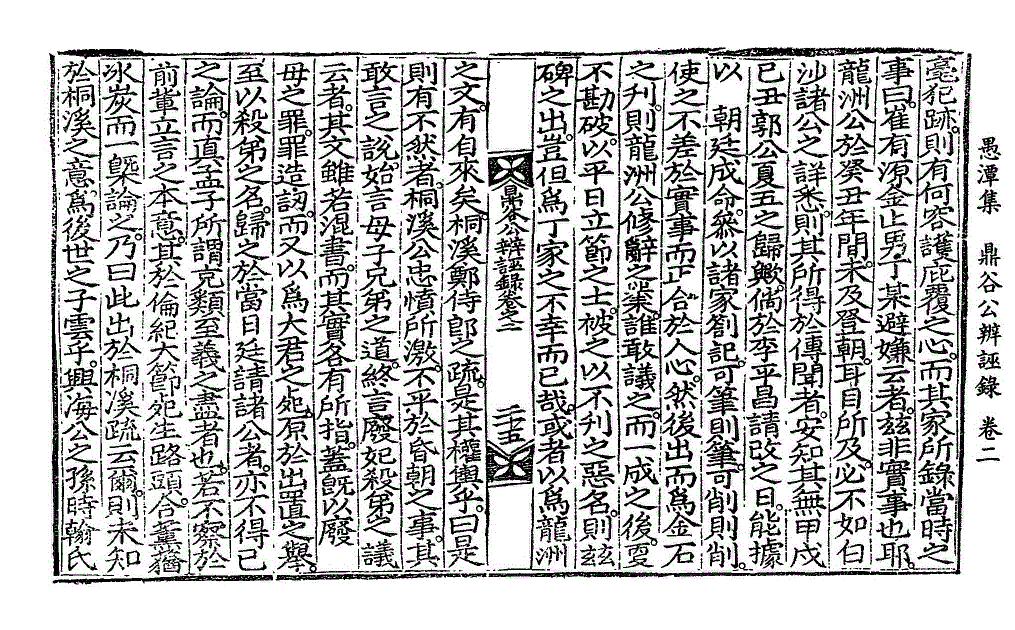 愚潭集　鼎谷公辨誣錄　卷二
毫犯跡則有何容護庇覆之心而其家所錄當時之
事曰崔有源金止男丁某避嫌云者玆非實事也耶
龍洲公於癸丑年間未及登朝耳目所及必不如白
沙諸公之詳悉則其所得於傳聞者安知其無甲戌
己丑郭公夏五之歸歟倘於李平昌請改之日能據
以　朝廷成命叅以諸家劄記可筆則筆可削則削
使之不差於實事而正合於人心然後出而爲金石
之刋則龍洲公修辭之業誰敢議之而一成之後更
不勘破以平日立節之士被之以不刋之惡名則玆
碑之出豈但爲丁家之不幸而已哉或者以爲龍洲
鼎谷公辨誣錄卷之二　二十五
之文有自來矣桐溪鄭侍郞之疏是其權輿乎曰是
則有不然者桐溪公忠憤所激不平於昏朝之事其
敢言之說始言母子兄弟之道終言廢妃殺弟之議
云者其文雖若混書而其實各有所指蓋旣以廢
母之罪罪造訒而又以爲大君之死原於出置之擧
至以殺弟之名歸之於當日廷請諸公者亦不得已
之論而眞孟子所謂克類至義之盡者也若不察於
前輩立言之本意其於倫紀大節死生路頭合薰蕕
氷炭而一槩論之乃曰此出於桐溪疏云爾則未知
於桐溪之意爲後世之子雲乎與海公之孫時翰氏